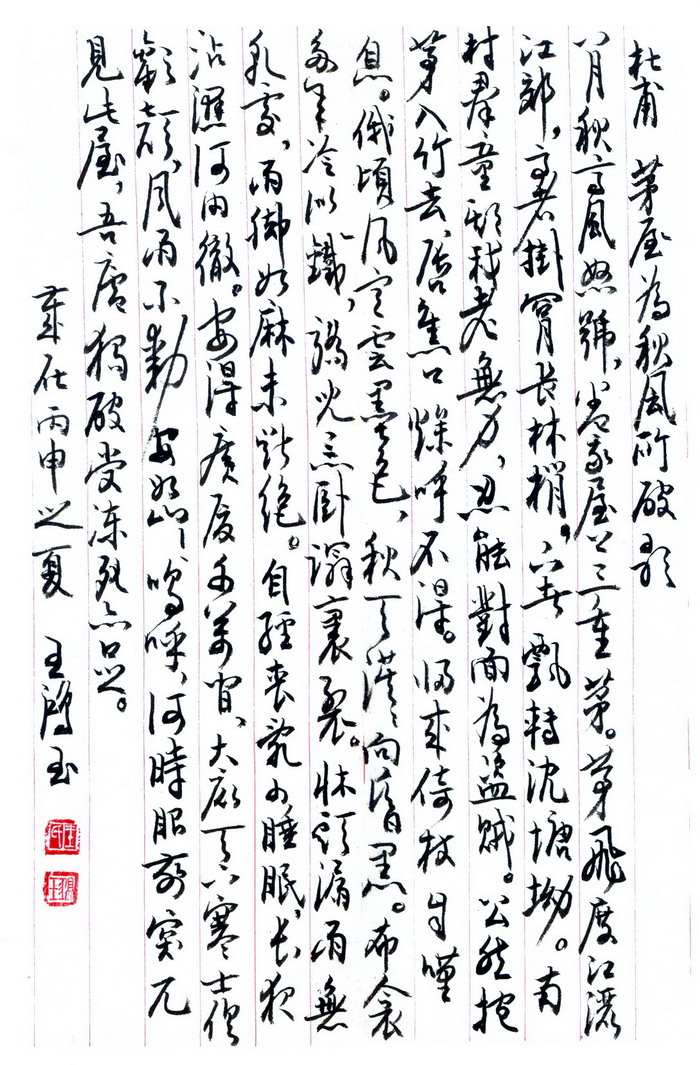 杜甫 茅屋為秋風所破歌
八月秋高風怒號,卷我屋上三重茅。茅飛度江灑
江郊,高者掛罥長林梢。下者飄轉沈塘坳。南
村群童欺我老無力,忍能對面為盜賊。公然抱
茅入竹去,唇焦口燥呼不得。歸來倚杖自嘆
息。俄頃風定雲墨色,秋天漠漠向昏黑。布衾
多年冷似鐵,驕兒惡臥蹋裏裂。床頭漏雨無
乾處,雨腳如麻未斷絕。自經喪亂少睡眠,長夜
沾濕何由徹。安得廣廈千萬間,大庇天下寒士俱
歡顏,風雨不動安如山,嗚呼,何時眼前突兀
見此屋,吾廬獨破受凍死亦足。
歲在丙申之夏 王鴻玉